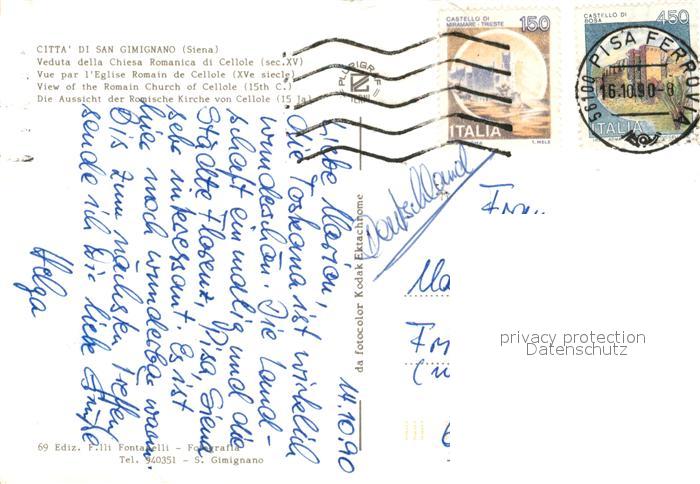 CITTA' DI SAN GIMIGNANO (Siena)
Veduta della Chiesa Romanica di Cellole (sec.XV)
Vue par l'Eglise Romain de Cellole (XVe siecle)
View of the Romain Church of Cellole (15th C.)
Die Aussicht der Romische Kirche von Cellole (15 Ja
PLURIGRAF
TERNI
CASTELLO DI
MIRAMARE - TRIESTE
150
ITALIA
CASTELLO DI
BOSA
450
ITALIA
56100 PISA FERROVIA
16.10.90-8
14.10.90
Liebe Marion,
die Toskana ist wirklich
wunderschön. Die Land-
schaft einmalig und die
Städte Florenz, Pisa, Siena
sehr interessant. Es ist
hier noch wunderbar warm.
Bis zum nächsten Treffen
sende ich Dir liebe Grüße
Helga
da fotocolor Kodak Ektachrome
Deutschland
privacy protection
Datenschutz
69 Ediz. F.lli Fontanelli - Fotografia
Tel. 940351 - S. Gimignano